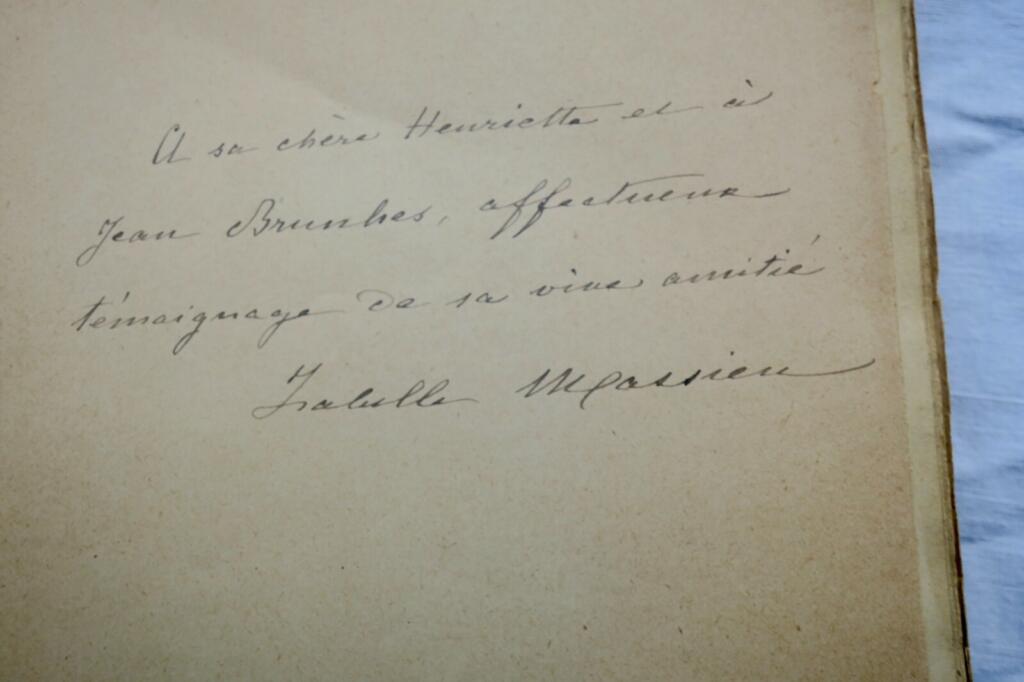 A sa chère Henriette et à
Jean Brunhes, affectueux
témoignage de sa vive amitié
Isabelle Massieu